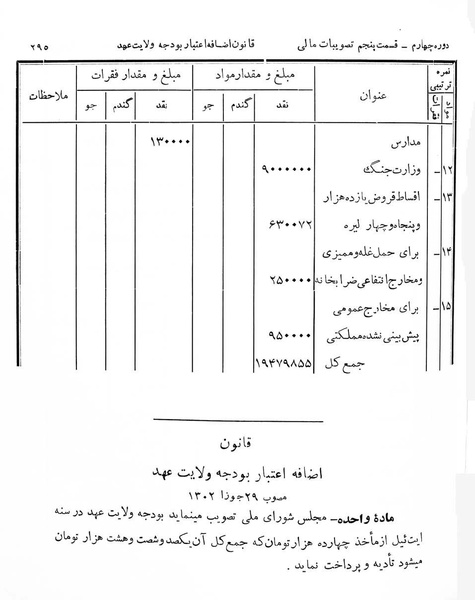 دوره چهارم - قسمت پنجم تصویبات مالی قانون اضافه اعتبار بودجه ولایت عهد ۲۹۵
نمره ترتیبی عنوان مبلغ و مقدار مواد مبلغ و مقدار فقرات ملاحظات
مواد فقرات نقد گندم جو نقد گندم جو
مدارس ۱۳۰۰۰۰
۱۲- وزارت جنگ ۹۰۰۰۰۰۰
۱۳- اقساط قروض یازده هزار
و پنجاه و چهار لیره ۶۳۰۰۷۲
۱۴- برای حمل غله و ممیزی
و مخارج انتفاعی ضرابخانه ۲۵۰۰۰۰
۱۵- برای مخارج عمومی
پیش بینی نشده مملکتی ۹۵۰۰۰۰
جمع کل ۱۹۴۷۹۸۵۵
قانون
اضافه اعتبار بودجه ولایت عهد
مصوب ۲۹ جوزا ۱۳۰۲
مادهٔ واحده - مجلس شورای ملی تصویب مینماید بودجه ولایت عهد در سنه
ایت ئیل از مأخذ چهارده هزار تومان که جمع کل آن یکصد و شصت و هشت هزار تومان
میشود تأدیه و پرداخت نماید .